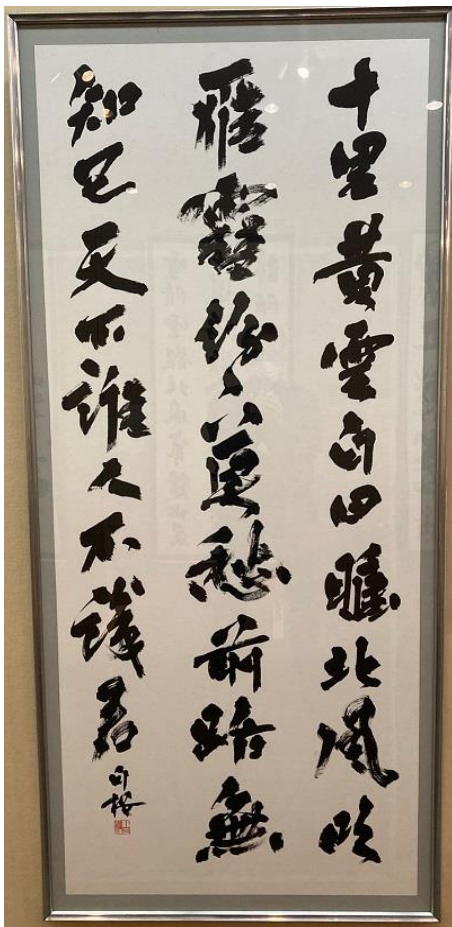 十里黄雲白日曛北風吹
雁雪紛々莫愁前路無
知己天下誰人不識君